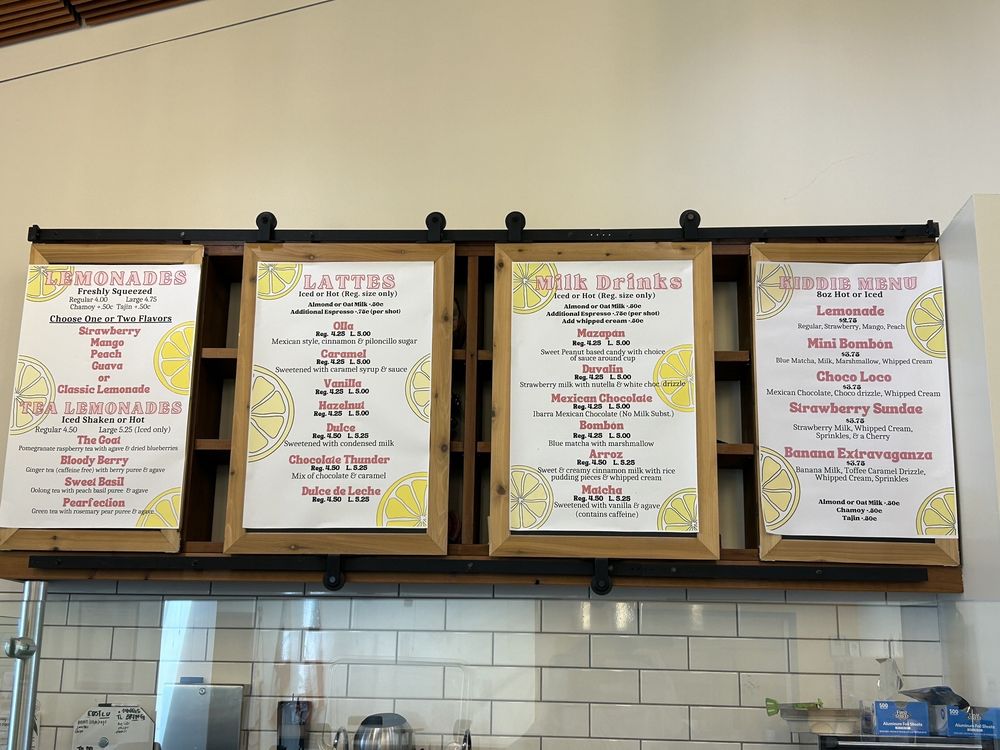 LEMONADES
Freshly Squeezed
Regular 4.00 Large 4.75
Chamoy +.50c Tajin +.50c
Choose One or Two Flavors
Strawberry
Mango
Peach
Guava
or
Classic Lemonade
TEA LEMONADES
Iced Shaken or Hot
Regular 4.50 Large 5.25 (Iced only)
The Goat
Pomegranate raspberry tea with agave & dried blueberries
Bloody Berry
Ginger tea (caffeine free) with berry puree & agave
Sweet Basil
Oolong tea with peach basil puree & agave
Pearfection
Green tea with rosemary pear puree & agave
LATTES
Iced or Hot (Reg. size only)
Almond or Oat Milk +.50c
Additional Espresso +.75c (per shot)
Olla
Reg. 4.25 L. 5.00
Mexican style, cinnamon & piloncillo sugar
Caramel
Reg. 4.25 L. 5.00
Sweetened with caramel syrup & sauce
Vanilla
Reg. 4.25 L. 5.00
Hazelnut
Reg. 4.25 L. 5.00
Dulce
Reg. 4.50 L. 5.25
Sweetened with condensed milk
Chocolate Thunder
Reg. 4.50 L. 5.25
Mix of chocolate & caramel
Dulce de Leche
Reg. 4.50 L. 5.25
Milk Drinks
Iced or Hot (Reg. size only)
Almond or Oat Milk +.50c
Additional Espresso +.75c (per shot)
Add whipped cream +.50c
Mazapán
Reg. 4.25 L. 5.00
Sweet Peanut based candy with choice
of sauce around cup
Duvalin
Reg. 4.25 L. 5.00
Strawberry milk with nutella & white choc. drizzle
Mexican Chocolate
Reg. 4.25 L. 5.00
Ibarra Mexican Chocolate (No Milk Subst.)
Bombón
Reg. 4.25 L. 5.00
Blue matcha with marshmallow
Arroz
Reg. 4.50 L. 5.25
Sweet & creamy cinnamon milk with rice
pudding pieces & whipped cream
Matcha
Reg. 4.50 L. 5.25
Sweetened with vanilla & agave
(contains caffeine)
KIDDIE MENU
8oz Hot or Iced
Lemonade
$2.75
Regular, Strawberry, Mango, Peach
Mini Bombón
$3.75
Blue Matcha, Milk, Marshmallow, Whipped Cream
Choco Loco
$3.75
Mexican Chocolate, Choco drizzle, Whipped Cream
Strawberry Sundae
$3.75
Strawberry Milk, Whipped Cream,
Sprinkles, & a Cherry
Banana Extravaganza
$3.75
Banana Milk, Toffee Caramel Drizzle,
Whipped Cream, Sprinkles
Almond or Oat Milk +.50c
Chamoy +.50c
Tajin +.50c
500
Aluminum Foil Sheets
500
Aluminum Foil Sheets